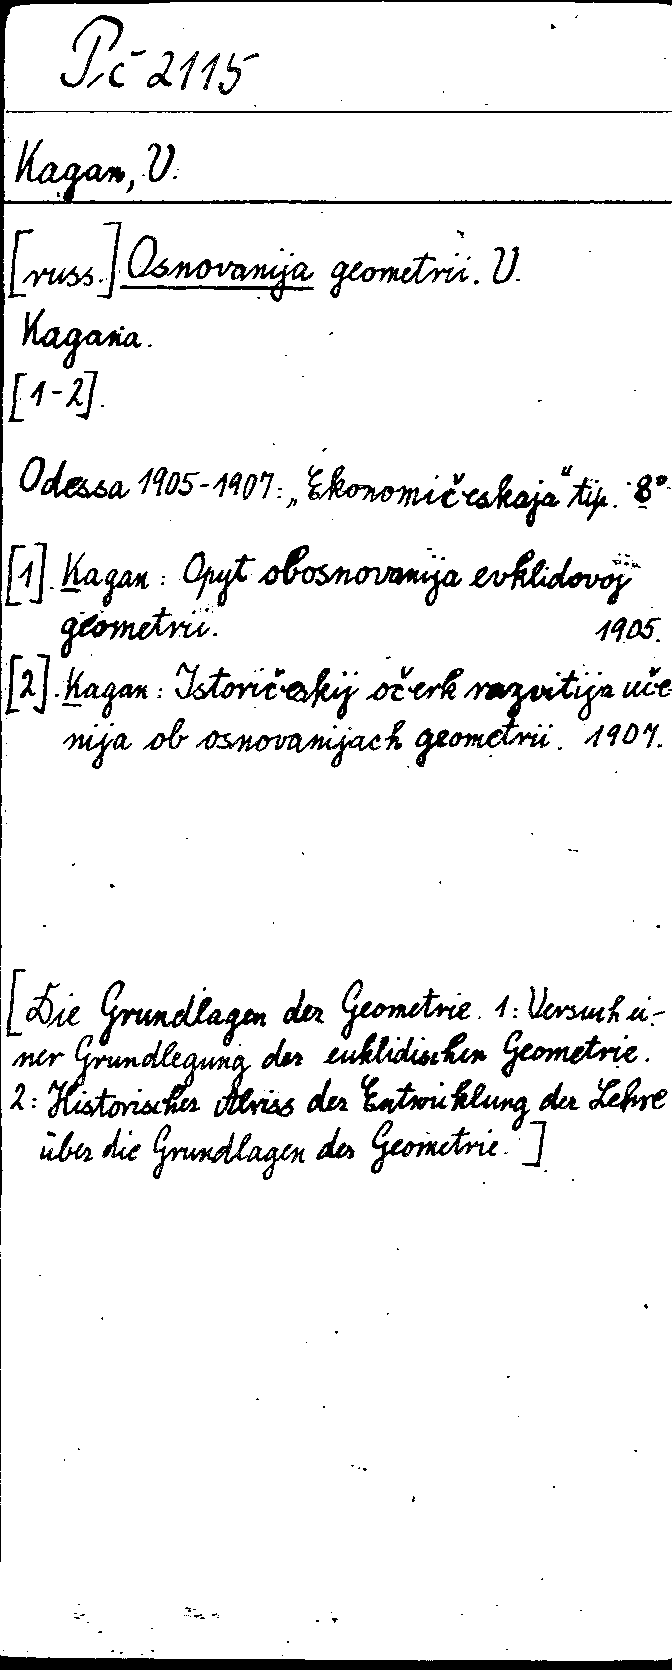 Pč 2115
Kagan, V.
[russ.] Osnovanija geometrii. V.
Kagana.
[1-2].
Odessa 1905-1907: „Ekonomičeskaja“ tip. 8°
[1]. Kagan: Opyt obosnovanija evklidovoj
geometrii. 1905.
[2]. Kagan: Istoričeskij očerk razvitija uče
nija ob osnovanijach geometrii. 1907.
[Die Grundlagen der Geometrie. 1: Versuch ei-
ner Grundlegung der euklidischen Geometrie.
2: Historischer Abriss der Entwicklung der Lehre
über die Grundlagen der Geometrie.]